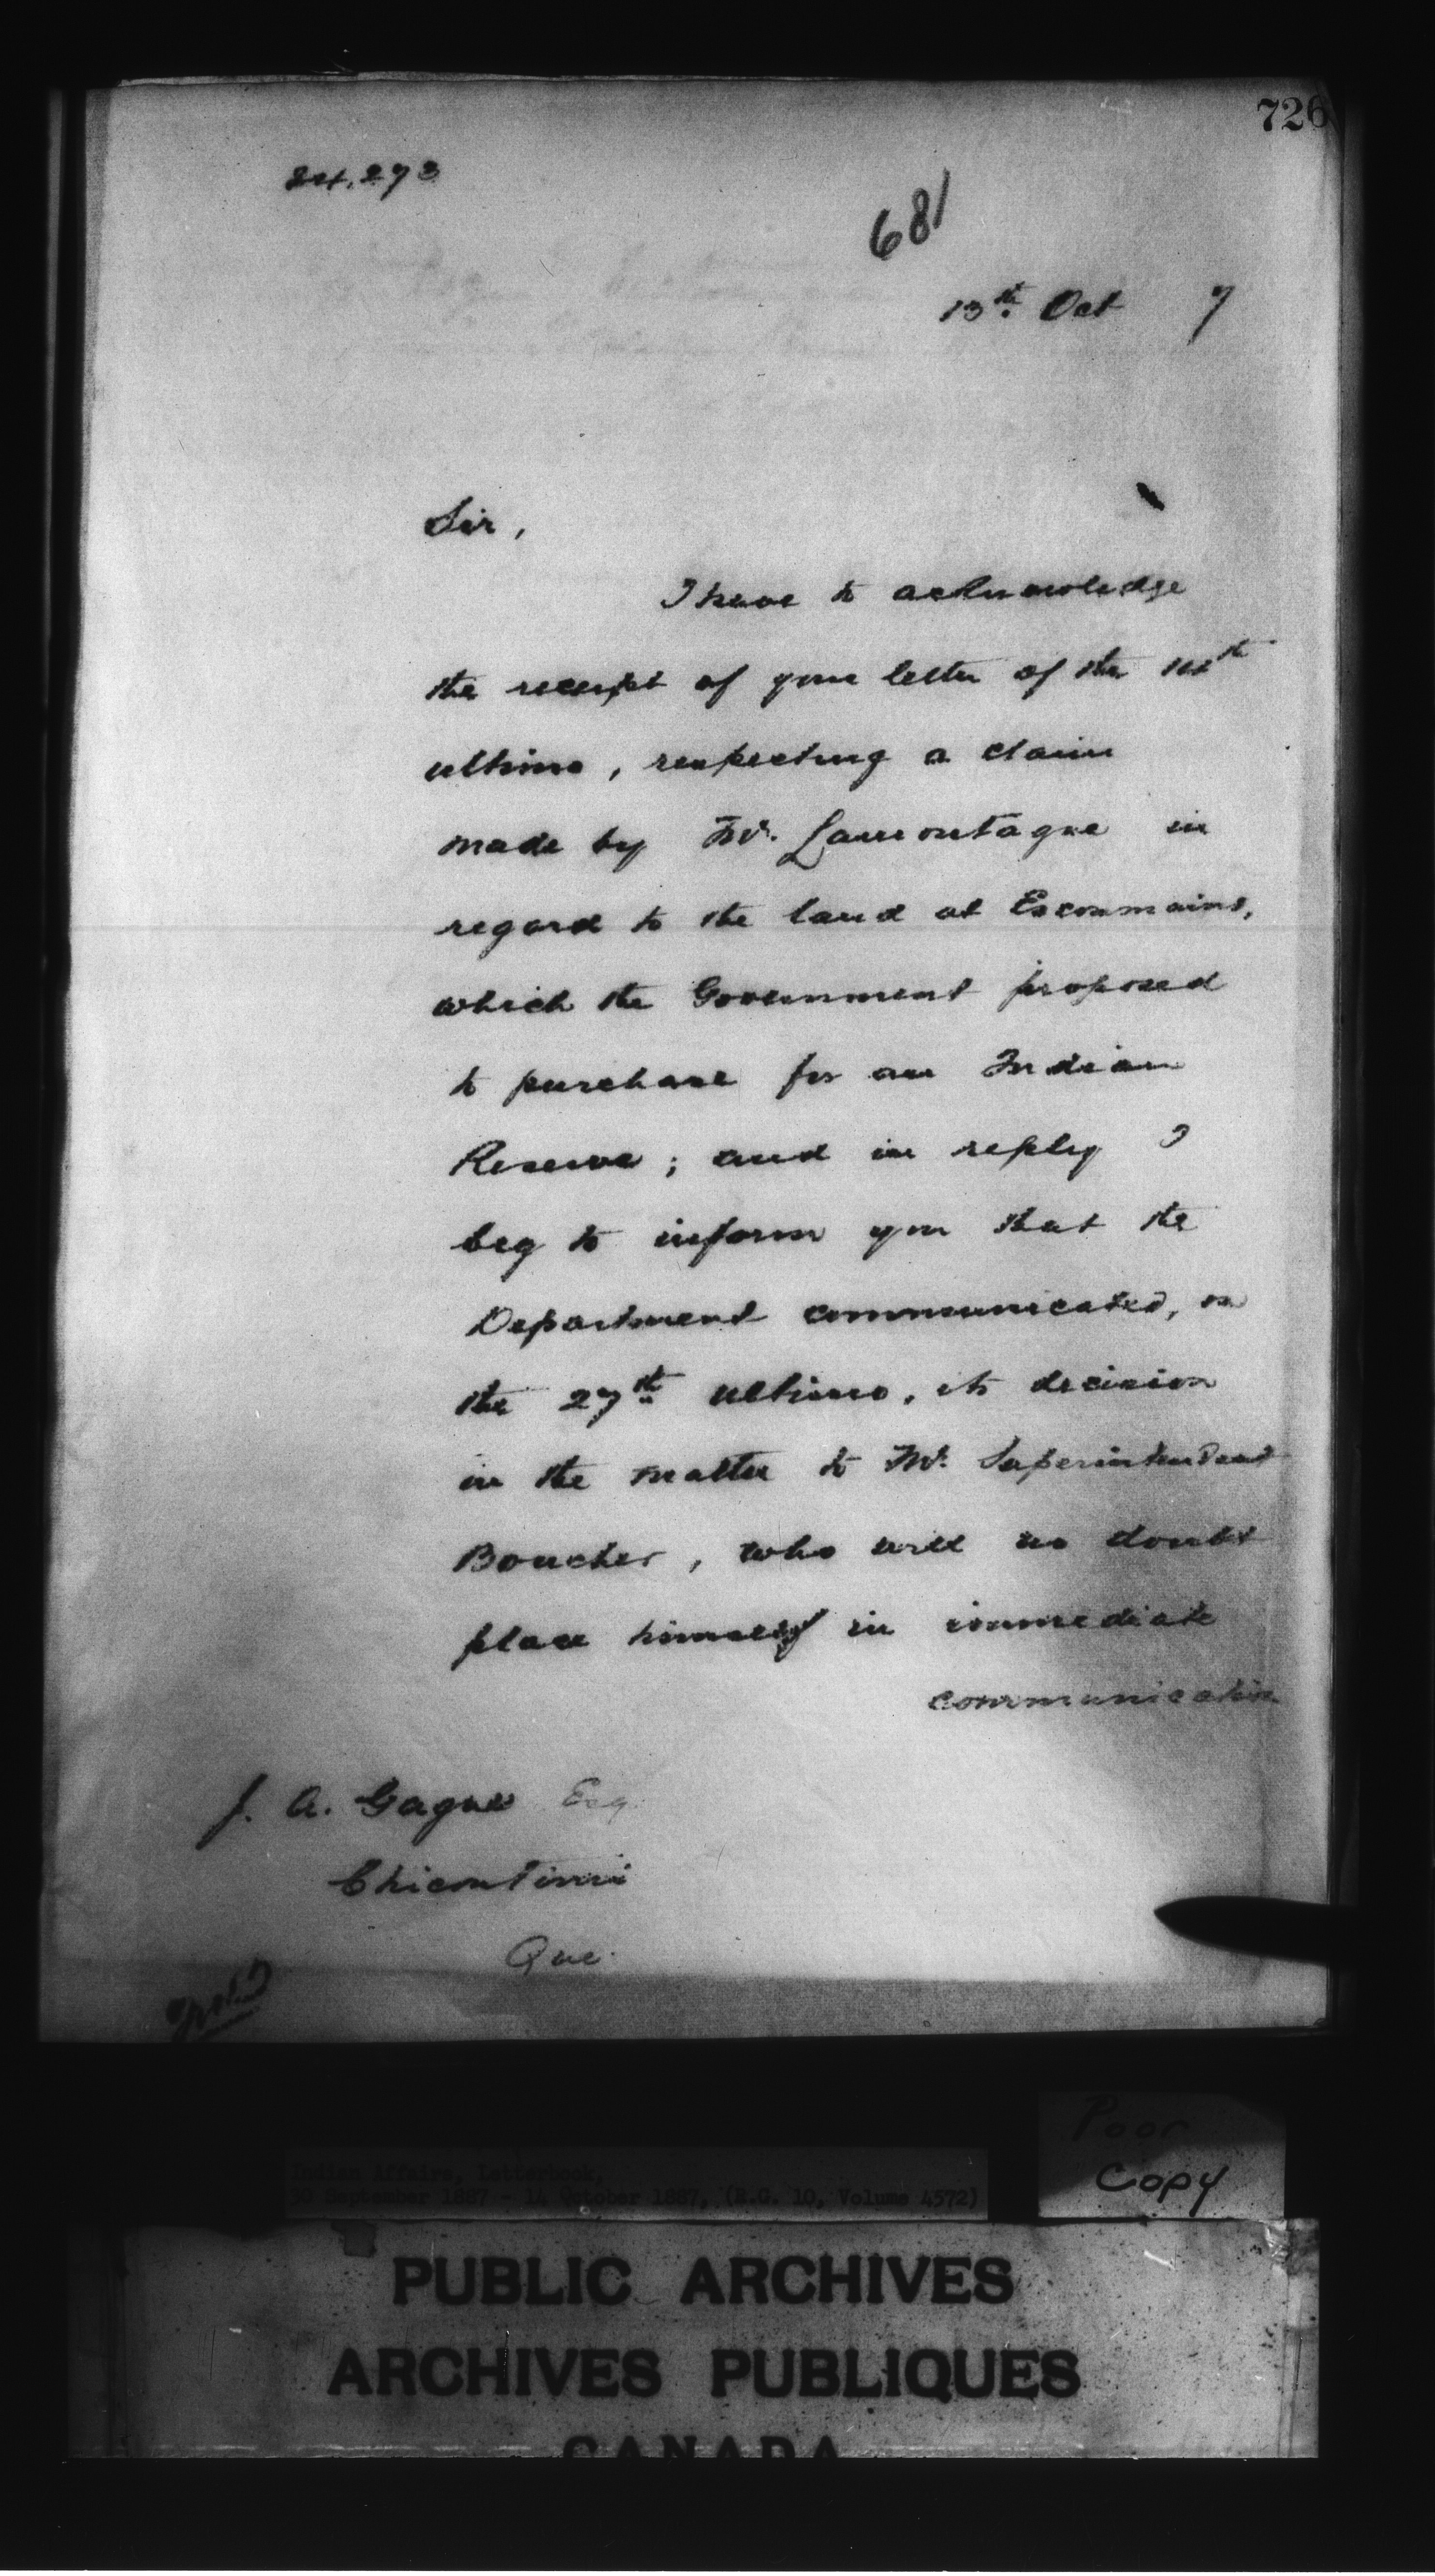 726
24.273
681
13th Oct 7
Sir,
I have to acknowledge
the receipt of your letter of the
ultimo, respecting a claim
made by Mr. Lamontagne in
regard to the land at Escoumains,
which the Government proposed
to purchase for an Indian
Reserve; and in reply I
beg to inform you that the
Department communicated, on
the 27th ultimo, its decision
in the matter to Mr. Superintendent
Boucher, who will no doubt
place himself in immediate
communication
J. A. Gagne Esq
Chicoutimi
Que.
Poor
Copy
Indian Affairs, Letterbook,
30 September 1887 - 14 October 1887, (R.G. 10, Volume 4572)
PUBLIC ARCHIVES
ARCHIVES PUBLIQUES
CANADA